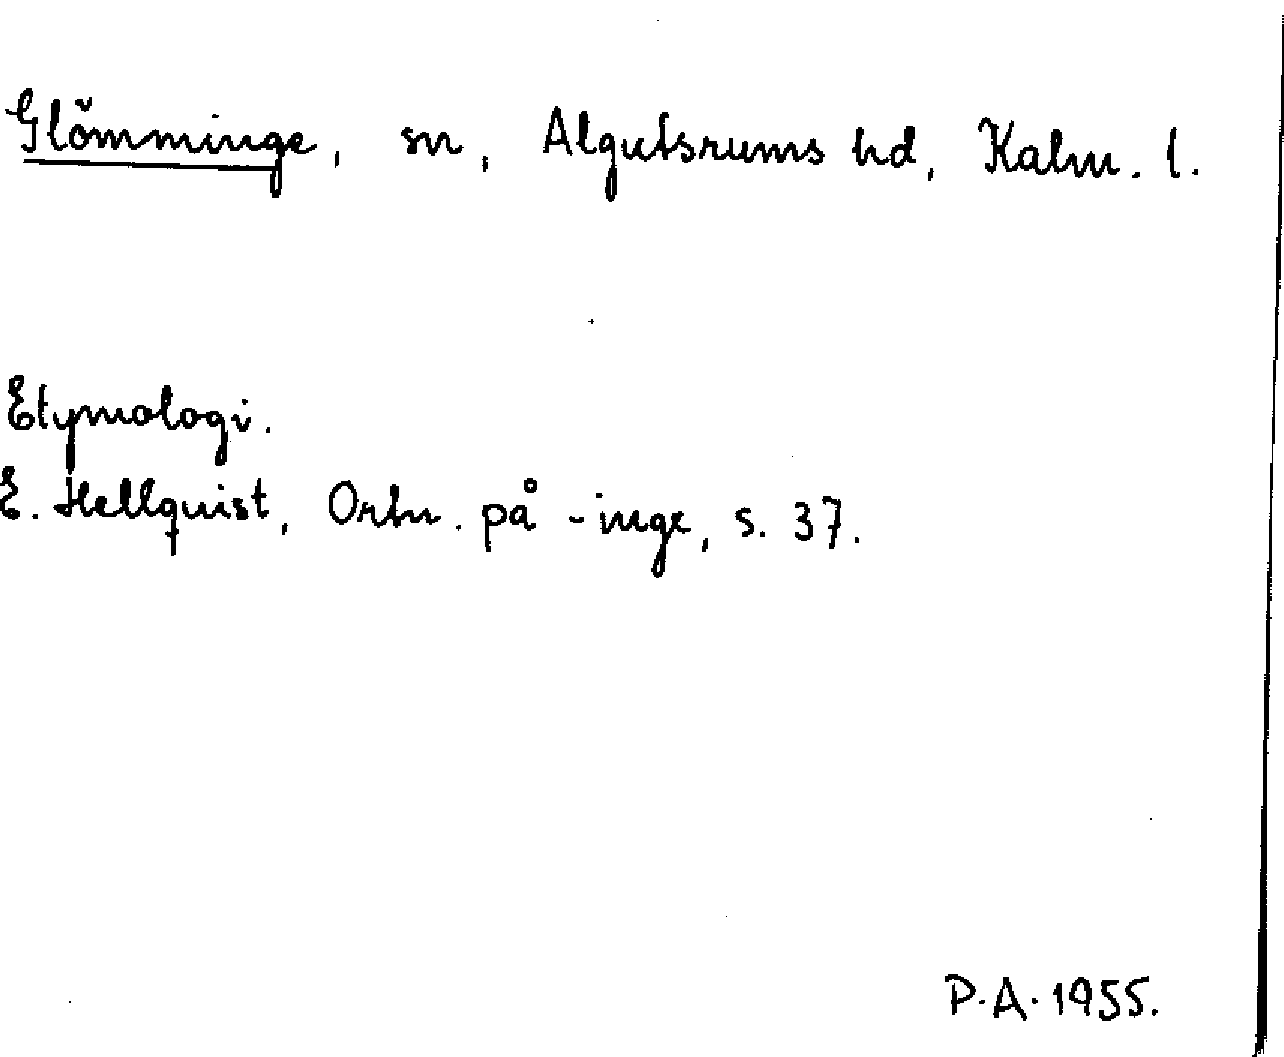 Glömminge, sn, Algutsrums hd, Kalm. l.
Etymologi.
E. Hellquist, Ortn. på -inge, s. 37.
P.A. 1955.